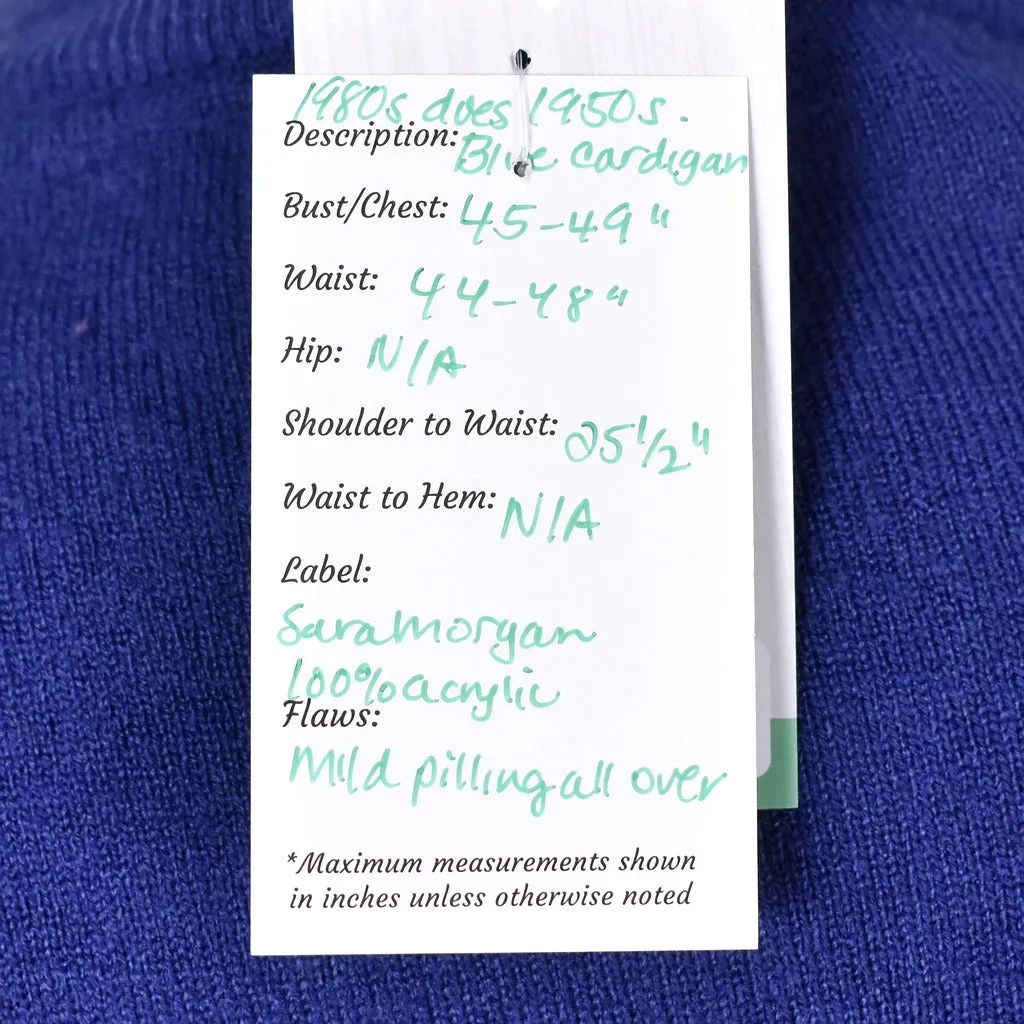 1980s does 1950s.
Description: Blue cardigan
Bust/Chest: 45-49"
Waist: 44-48"
Hip: N/A
Shoulder to Waist: 25 1/2"
Waist to Hem: N/A
Label:
Sara Morgan
100% acrylic
Flaws:
Mild pilling all over
*Maximum measurements shown
in inches unless otherwise noted